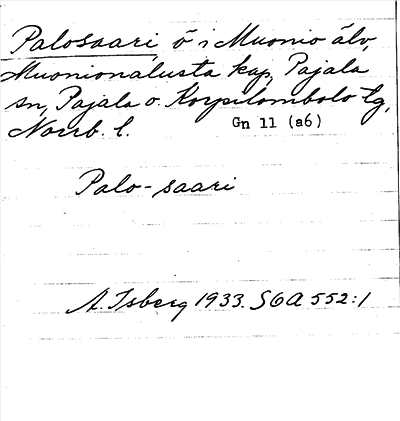 Palosaari ö i Muonio älv,
Muonionalusta kap, Pajala
sn, Pajala o. Korpilombolo tg,
Norrb. l. Gn 11 (a6)
Palo-saari
A. Isberg 1933. SOA 552:1